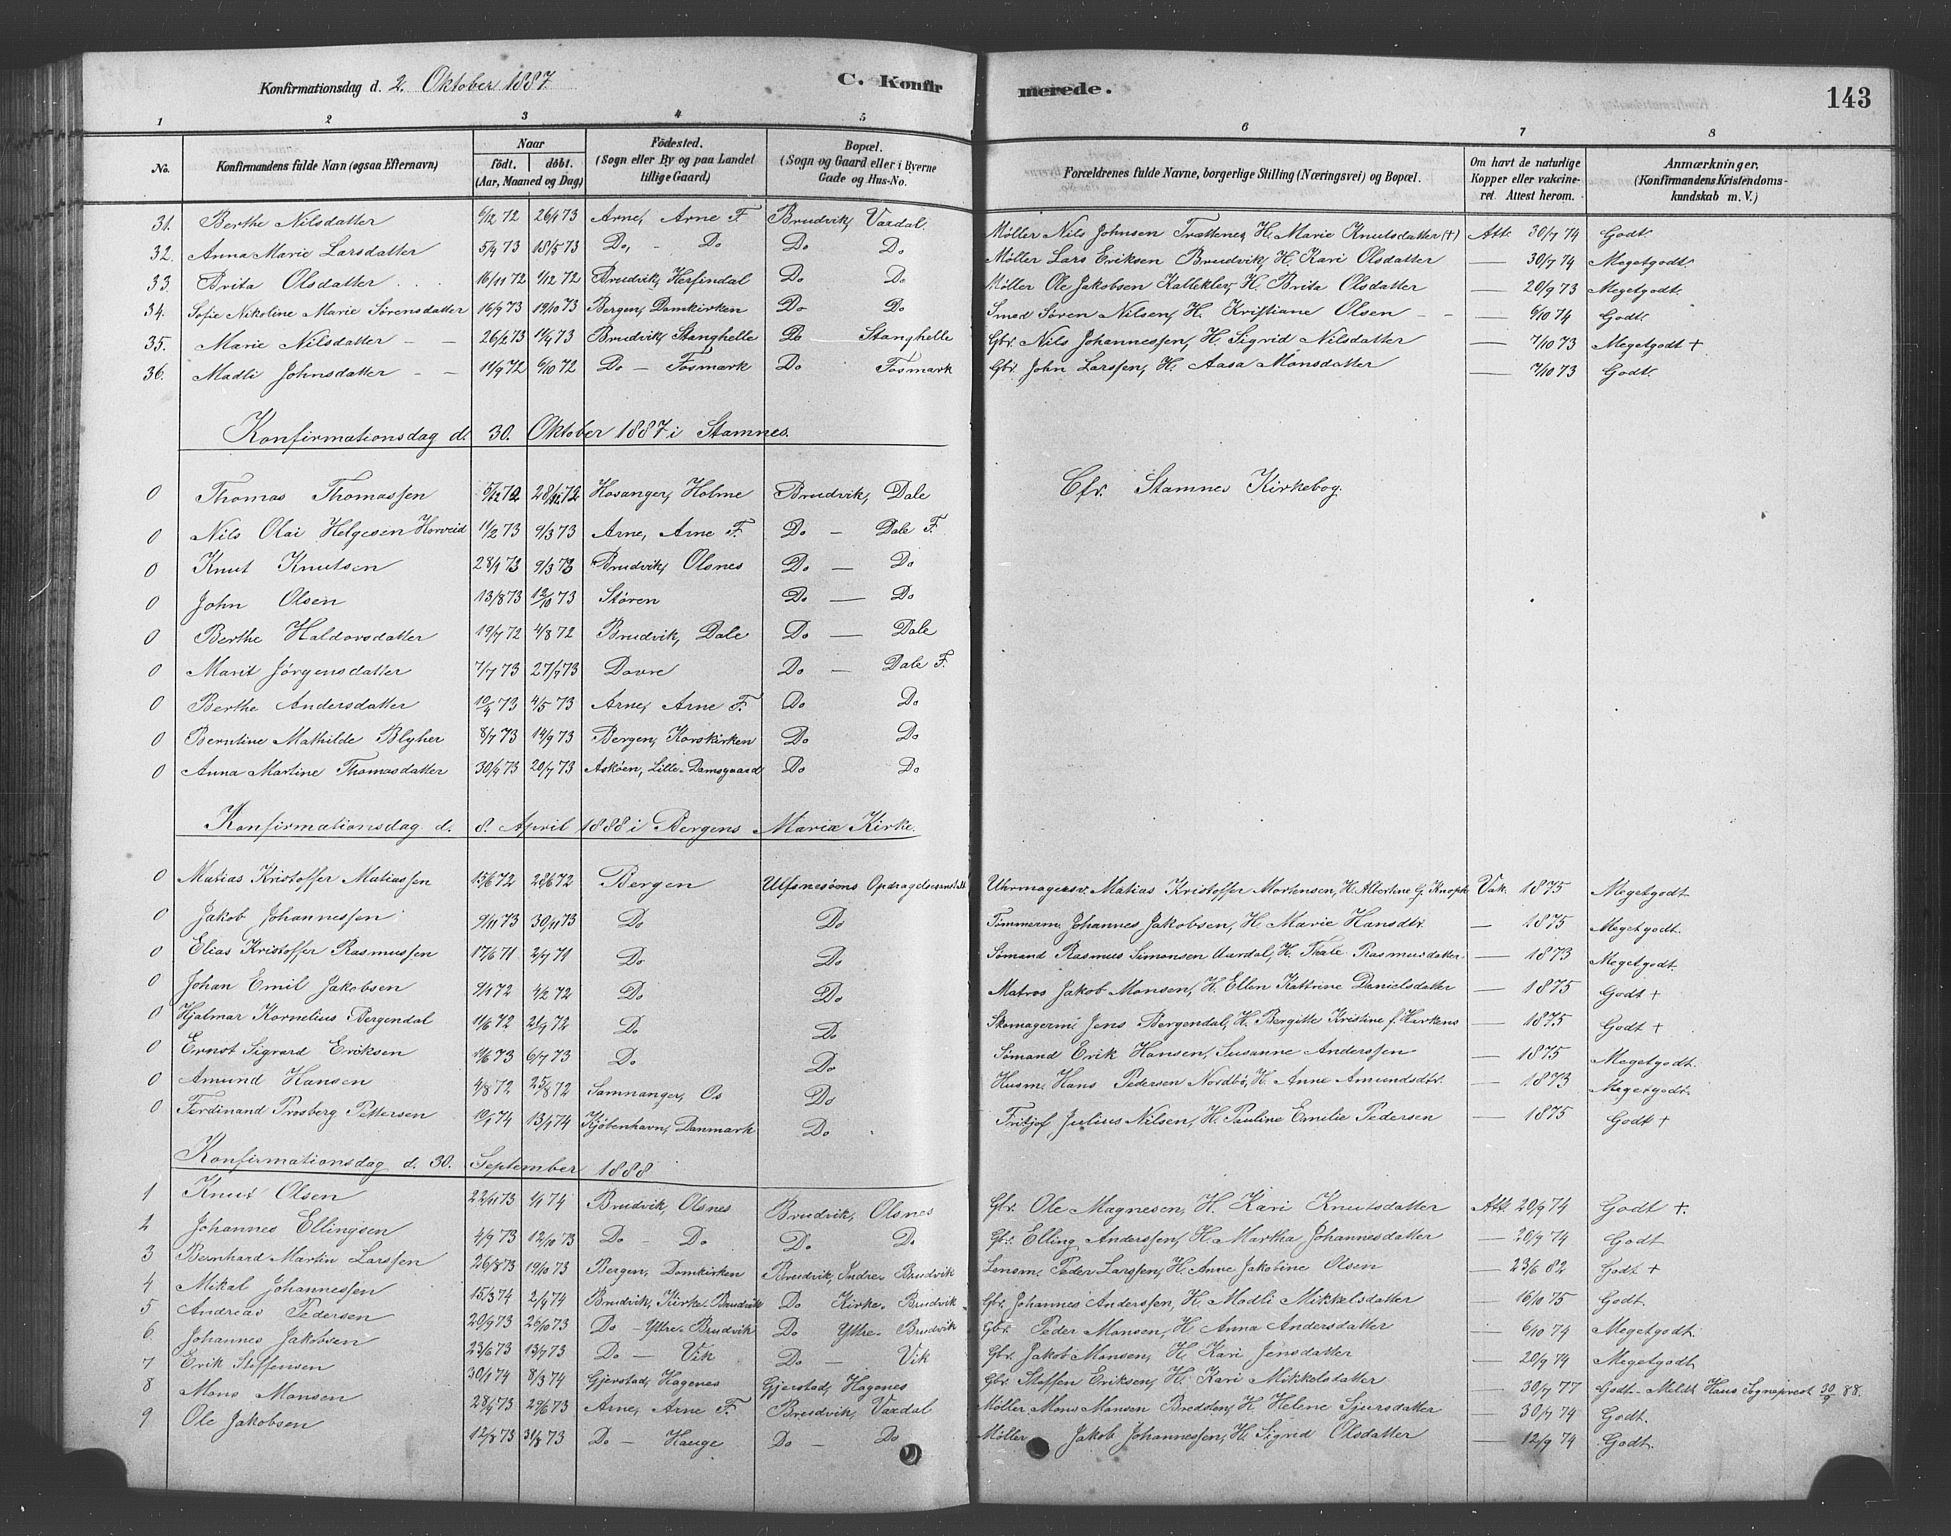 Konfirmationsdag d. 2. Oktober 1887. C. Konfirmerede. 143
1 2 3 4 5 6 7 8
No. Konfirmandens fulde Navn (ogsaa Efternavn) Naar födt. döbt. (Aar, Maaned og Dag) Födested. (Sogn eller By og paa Landet tillige Gaard) Bopæl. (Sogn og Gaard eller i Byerne Gade og Hus-No. Forældrenes fulde Navne, borgerlige Stilling (Næringsvei) og Bopæl. Om havt de naturlige Kopper eller vakcineret. Attest herom. Anmærkninger. (Konfirmandens Kristendomskundskab m. V.)
31. Berthe Nilsdatter 6/12 72 26/1 73 Arne, Arne F. Brudvik, Vaxdal. Møller Nils Johnsen Trættenes, H. Marie Knutsdatter (+) Att. 30/7 74 Godt.
32. Anna Marie Larsdatter 5/4 73 18/5 73 Do, - Do Do Do Møller Lars Eriksen Brudvik, H. Kari Olsdatter — 30/7 74 Megetgodt.
33 Brita Olsdatter 16/11 72 1/12 72 Brudvik, Herfindal Do Do Møller Ole Jakobsen Kalleklev, H. Brita Olsdatter — 20/9 73 Megetgodt.
34. Sofie Nikoline Marie Sørensdatter 16/9 73 19/10 73 Bergen, Domkirken Do Do Smed Søren Nilsen, H. Kristiane Olsen — 6/10 74 Godt.
35. Marie Nilsdatter 26/2 73 14/4 73 Brudvik, Stanghelle Do Stanghelle Gbr. Nils Johannessen, H. Sigrid Nilsdatter — 7/10 73 Megetgodt +
36. Madli Johnsdatter 11/9 72 6/10 72 Do — Fosmark Do Fosmark Gbr. John Larssen, H. Aasa Monsdatter — 7/10 73 Godt.
Konfirmationsdag d. 30. Oktober 1887 i Stamnes.
0 Thomas Thomassen 5/12 72 28/12 72 Hosanger, Holme Brudvik, Dale Cfr. Stamnes Kirkebog.
0 Nils Olai Helgesen Horveid 11/2 73 9/3 73 Arne, Arne F. Do — Dale F.
0 Knut Knutsen 28/1 73 9/3 73 Brudvik, Olsnes Do — Do
0 John Olsen 13/8 73 12/10 73 Støren Do — Do
0 Berthe Haldorsdatter 19/7 72 4/8 72 Brudvik, Dale Do — Dale
0 Marit Jørgensdatter 7/7 73 27/7 73 Dovre Do — Dale F.
0 Berthe Andersdatter 10/4 73 4/5 73 Arne, Arne F. Do Do
0 Berntine Mathilde Blyher 8/7 73 14/9 73 Bergen, Korskirken Do Do
0 Anna Martine Thomasdatter 30/4 73 20/7 73 Askøen, Lille-Damsgaard Do Do
Konfirmationsdag d. 8. April 1888 i Bergens Mariæ Kirke.
0 Matias Kristoffer Matiassen 15/6 72 28/6 72 Bergen Ulfsnesøens Opdragelsesanstalt Uhrmagersv. Matias Kristoffer Mortensen, H. Albertine f. Knoph Vak. 1875 Megetgodt
0 Jakob Johannessen 9/11 73 30/11 73 Do Do Tømmerm. Johannes Jakobsen, H. Marie Hansdtr. — 1875 Megetgodt.
0 Elias Kristoffer Rasmussen 17/6 71 2/7 71 Do Do Sømand Rasmus Simonsen Aardal, H. Thale Rasmusdatter — 1873 Megetgodt.
0 Johan Emil Jakobsen 9/1 72 4/2 72 Do Do Matros Jakob Monsen, H. Ellen Kattrine Danielsdatter — 1875 Godt +
0 Hjalmar Kornelius Bergendal 11/6 72 21/9 72 Do Do Skomagerm. Jens Bergendal, H. Bergitte Kristine f. Harkens — 1875 Godt +
0 Ernst Sigvard Eriksen 11/6 73 6/7 73 Do Do Sømand Erik Hansen, Susanne Anderssen — 1875 Megetgodt.
0 Amund Hansen 4/8 72 25/8 72 Samnanger, Os Do Husm. Hans Pedersen Nordbø, H. Anne Amundsdtr. — 1873 Megetgodt.
0 Ferdinand Prosberg Pettersen 10/1 74 13/1 74 Kjöbenhavn, Danmark Do Fritjof Julius Nilsen, H. Pauline Emilie Pedersen — 1875 Godt +
Konfirmationsdag d. 30. September 1888
1 Knut Olsen 22/11 73 1/1 74 Brudvik, Olsnes Brudvik, Olsnes Gbr. Ole Magnesen, H. Kari Knutsdatter Att. 20/9 74 Godt +.
2 Johannes Ellingsen 4/9 73 12/10 73 Do — Do Do Do Gbr. Elling Anderssen, H. Martha Johannesdatter — 20/9 74 Godt
3 Bernhard Martin Larssen 26/8 73 19/10 73 Bergen, Domkirken Brudvik, Indre-Brudvik Lensm. Peder Larssen, H. Anne Jakobine Olsen — 23/6 82 Godt +
4 Mikal Johannessen 15/3 74 2/4 74 Brudvik, Kirke-Brudvik Do Kirke-Brudvik Gbr. Johannes Anderssen, H. Madli Mikkelsdatter — 16/10 75 Godt.
5 Andreas Pedersen 20/9 73 26/10 73 Do - Yttre-Brudvik Do Yttre-Brudvik Gbr. Peder Monsen, H. Anna Andersdatter — 6/10 74 Megetgodt.
6. Johannes Jakobsen 23/6 73 13/7 73 Do — Vik Do — Vik Gbr. Jakob Monsen, H. Kari Jensdatter — 20/9 74 Megetgodt
7 Erik Steffensen 30/1 74 8/3 74 Gjerstad, Hagenes Gjerstad, Hagenes Gbr. Steffen Eriksen, H. Kari Mikkelsdatter — 30/7 77 Godt. Meldt Haus Sognepræst 30/9 88.
8 Mons Monsen 28/4 73 29/6 73 Arne, Arne F. Brudvik, Vaxdal Møller Mons Monsen Bredsten, H. Helene Sjursdatter — 30/7 74 Godt.
9 Ole Jakobsen 12/8 73 31/8 73 Do — Hauge Do — Do Møller Jakob Johannessen, H. Sigrid Olsdatter — 12/9 74 Godt.